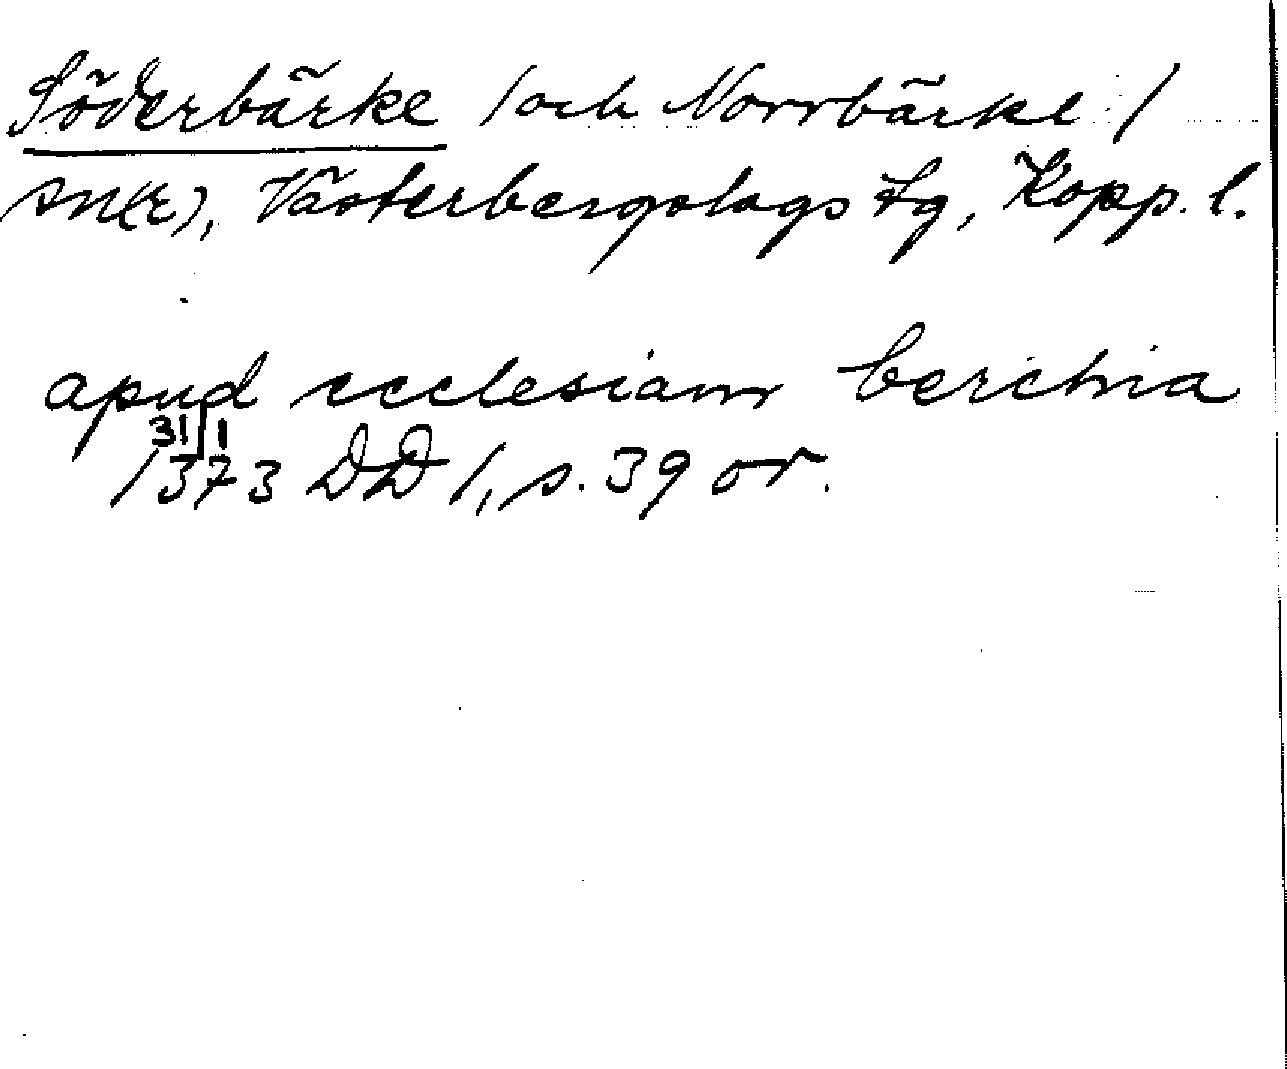 Söderbärke / och Norrbärke /
sn(r), Västerbergslags tg, Kopp. l.
apud ecclesiam berchia
31/1
1373 DD 1, s. 39 or.